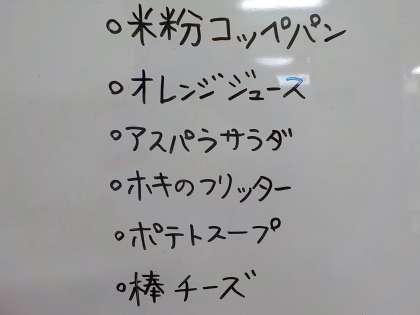 ○米粉コッペパン
○オレンジジュース
○アスパラサラダ
○ホキのフリッター
○ポテトスープ
○棒チーズ